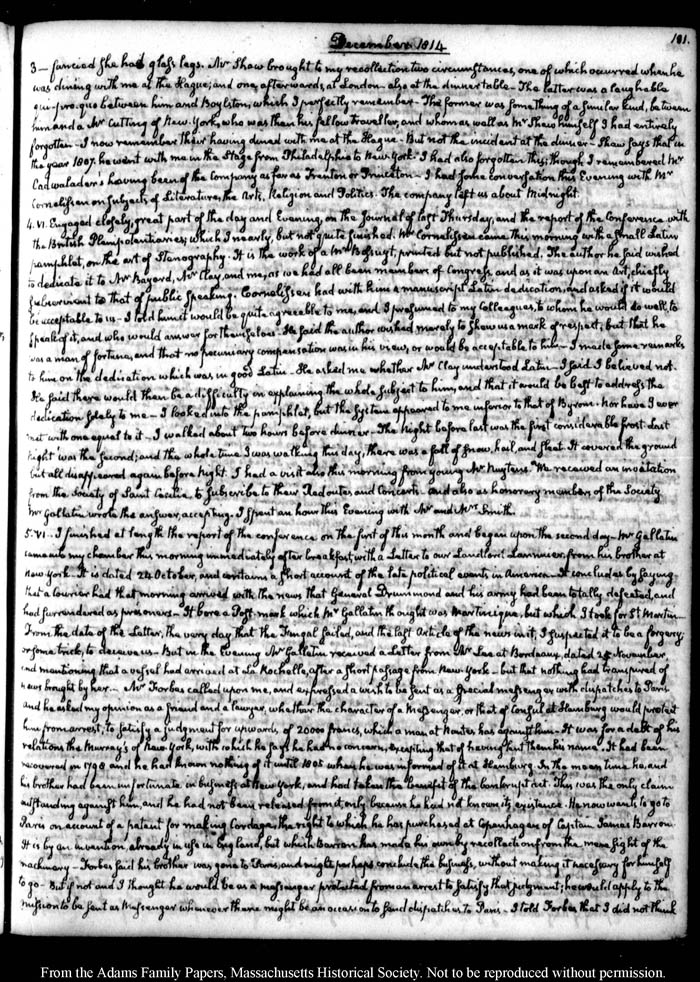 December 1814
181.
3 — fancied she had glass legs. Mr Shaw brought to my recollection two circumstances, one of which occurred when he
was dining with me at the Hague; and one, afterwards, at London - also at the dinner table - The latter was a laughable
qui-pro-quo between him and Boylston, which I perfectly remember - The former was something of a similar kind, between
him and a Mr Cutting of New-York, who was then his fellow traveller, and whom as well as Mr Shaw himself I had entirely
forgotten - I now remember their having dined with me at the Hague - But not the incident at the dinner - Shaw says that in
the year 1807. he went with me in the Stage from Philadelphia to New-York. I had also forgotten this; though I remembered Mr
Cadwalader's having been of the company as far as Trenton or Princeton - I had some conversation this Evening with Mr
Cornelissen on subjects of Literature, the Arts, Religion and Politics. The company left us about Midnight.
4. VI. Engaged closely, great part of the day and Evening, on the Journal of last Thursday, and the report of the Conference with
the British Plenipotentiaries, which I nearly, but not quite finished. Mr Cornelissen came this morning with a small Latin
pamphlet, on the art of Stenography. It is the work of a Mr Bossuyt, printed but not published. The author he said wished
to dedicate it to Mr Bayard, Mr Clay, and me, as we had all been members of Congress, and as it was upon an Art, chiefly
subservient to that of public speaking. Cornelissen had with him a manuscript Latin dedication, and asked if it would
be acceptable to us - I told him it would be quite agreeable to me, and I presumed to my Colleagues, to whom he would do well, to
speak of it, and who would answer for themselves. He said the author wished merely, to shew us a mark of respect; but that he
was a man of fortune, and that no pecuniary compensation was in his view, or would be acceptable to him - I made some remarks
to him on the dedication which was in good Latin - He asked me whether Mr Clay understood Latin - I said I believed not.
He said there would then be a difficulty in explaining the whole subject to him, and that it would be best to address the
dedication solely to me - I looked into the pamphlet, but the system appeared to me inferior to that of Byrom. Nor have I ever
met with one equal to it - I walked about two hours before dinner - The night before last was the first considerable frost. Last
night was the second; and the whole time I was walking this day, there was a fall of snow, hail, and sleet. It covered the ground
but all disappeared again before night. I had a visit also this morning from young Mr Meyers. We received an invitation
from the Society of Saint Cecilia to subscribe to their Redoutes, and Concerts. and also as honorary members of the Society
Mr Gallatin wrote the answer, accepting. I spent an hour this Evening with Mr and Mrs Smith.
5. VI - I finished at length the report of the conference on the first of this month and began upon the second day - Mr Gallatin
came into my chamber this morning immediately after breakfast, with a Letter to our Landlord Lannuier, from his brother at
New York. It is dated 24 October, and contains a short account of the late political events in America - It concludes by saying
that a Courier had that morning arrived with the news that General Drummond and his army had been totally defeated, and
had surrendered as prisoners. It bore a Post mark which Mr Gallatin thought was Martinique, but which I took for St Martin -
From the date of the Letter, the very day that the Fingal sailed, and the last Article of the news in it, I suspected it to be a forgery;
or some trick, to deceive us - But in the Evening Mr Gallatin received a Letter from Mr Lee at Bordeaux, dated 25 November,
and mentioning that a vessel had arrived at La Rochelle, after a short passage from New York - but that nothing had transpired of
news brought by her - Mr Forbes called upon me, and expressed a wish to be sent as a Special messenger with dispatches to Paris
and he asked my opinion as a friend and a lawyer, whether the character of a Messenger, or that of Consul at Hamburg would protect
him from arrest, to satisfy a judgment for upwards, of 20000 francs, which a man at Nantes has against him - It was for a debt of his
relations the Murray's of New York, with which he says he had no concern, excepting that of having lent them his name. It had been
recovered in 1798 and he had known nothing of it until 1805 when he was informed of it at Hamburg. In the mean time he, and
his brother had been unfortunate in business at New York, and had taken the benefit of the bankrupt act. This was the only claim
outstanding against him, and he had not been released from it, only because he had not known its existence. He now wants to go to
Paris on account of a patent for making Cordage, the right to which he has purchased at Copenhagen of Captain James Barron.
It is by an invention, already in use in England, but which Barron has made his own by recollection from the mere sight of the
machinery - Forbes said his brother was gone to Paris, and might perhaps conclude the business, without making it necessary for himself
to go - But if not and I thought he would be as a messenger protected from an arrest to satisfy that judgment; he would apply to the
mission to be sent as Messenger whenever there might be an occasion to send dispatches to Paris - I told Forbes that I did not think
From the Adams Family Papers, Massachusetts Historical Society. Not to be reproduced without permission.